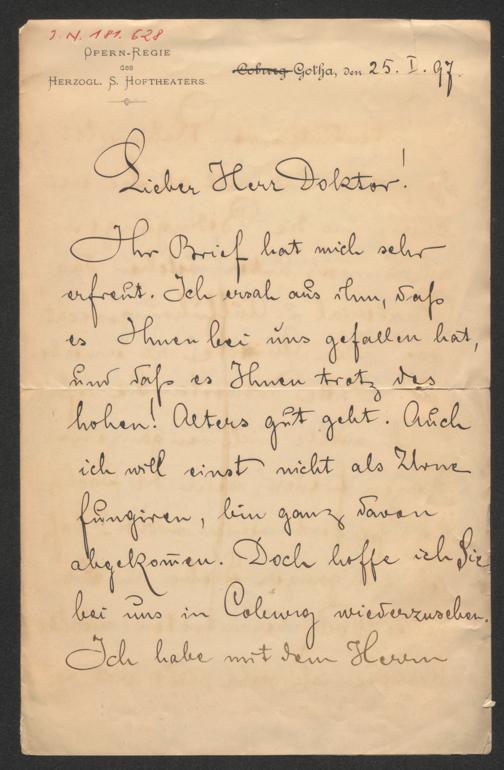 J. N. 181.628
OPERN-REGIE
DES
HERZOGL. S. HOFTHEATERS.
Coburg Gotha, den 25. I. 97.
Lieber Herr Doktor!
Ihr Brief hat mich sehr
erfreut. Ich ersah aus ihm, daß
es Ihnen bei uns gefallen hat,
und daß es Ihnen trotz des
hohen! Alters gut geht. Auch
ich will einst nicht als Urne
fungiren, bin ganz davon
abgekom̅en. Doch hoffe ich Sie
bei uns in Coburg wiederzusehen.
Ich habe mit dem Herrn